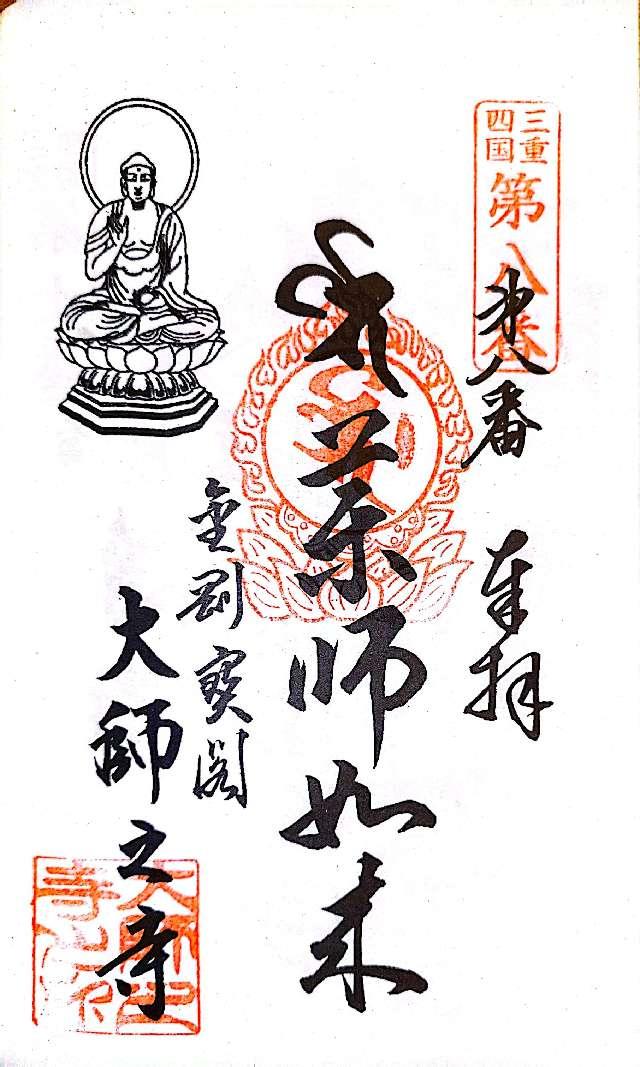 三重
四国
第八番
奉拝
第八番
薬師如来
金剛寳閣
大師之寺
大師之
寺